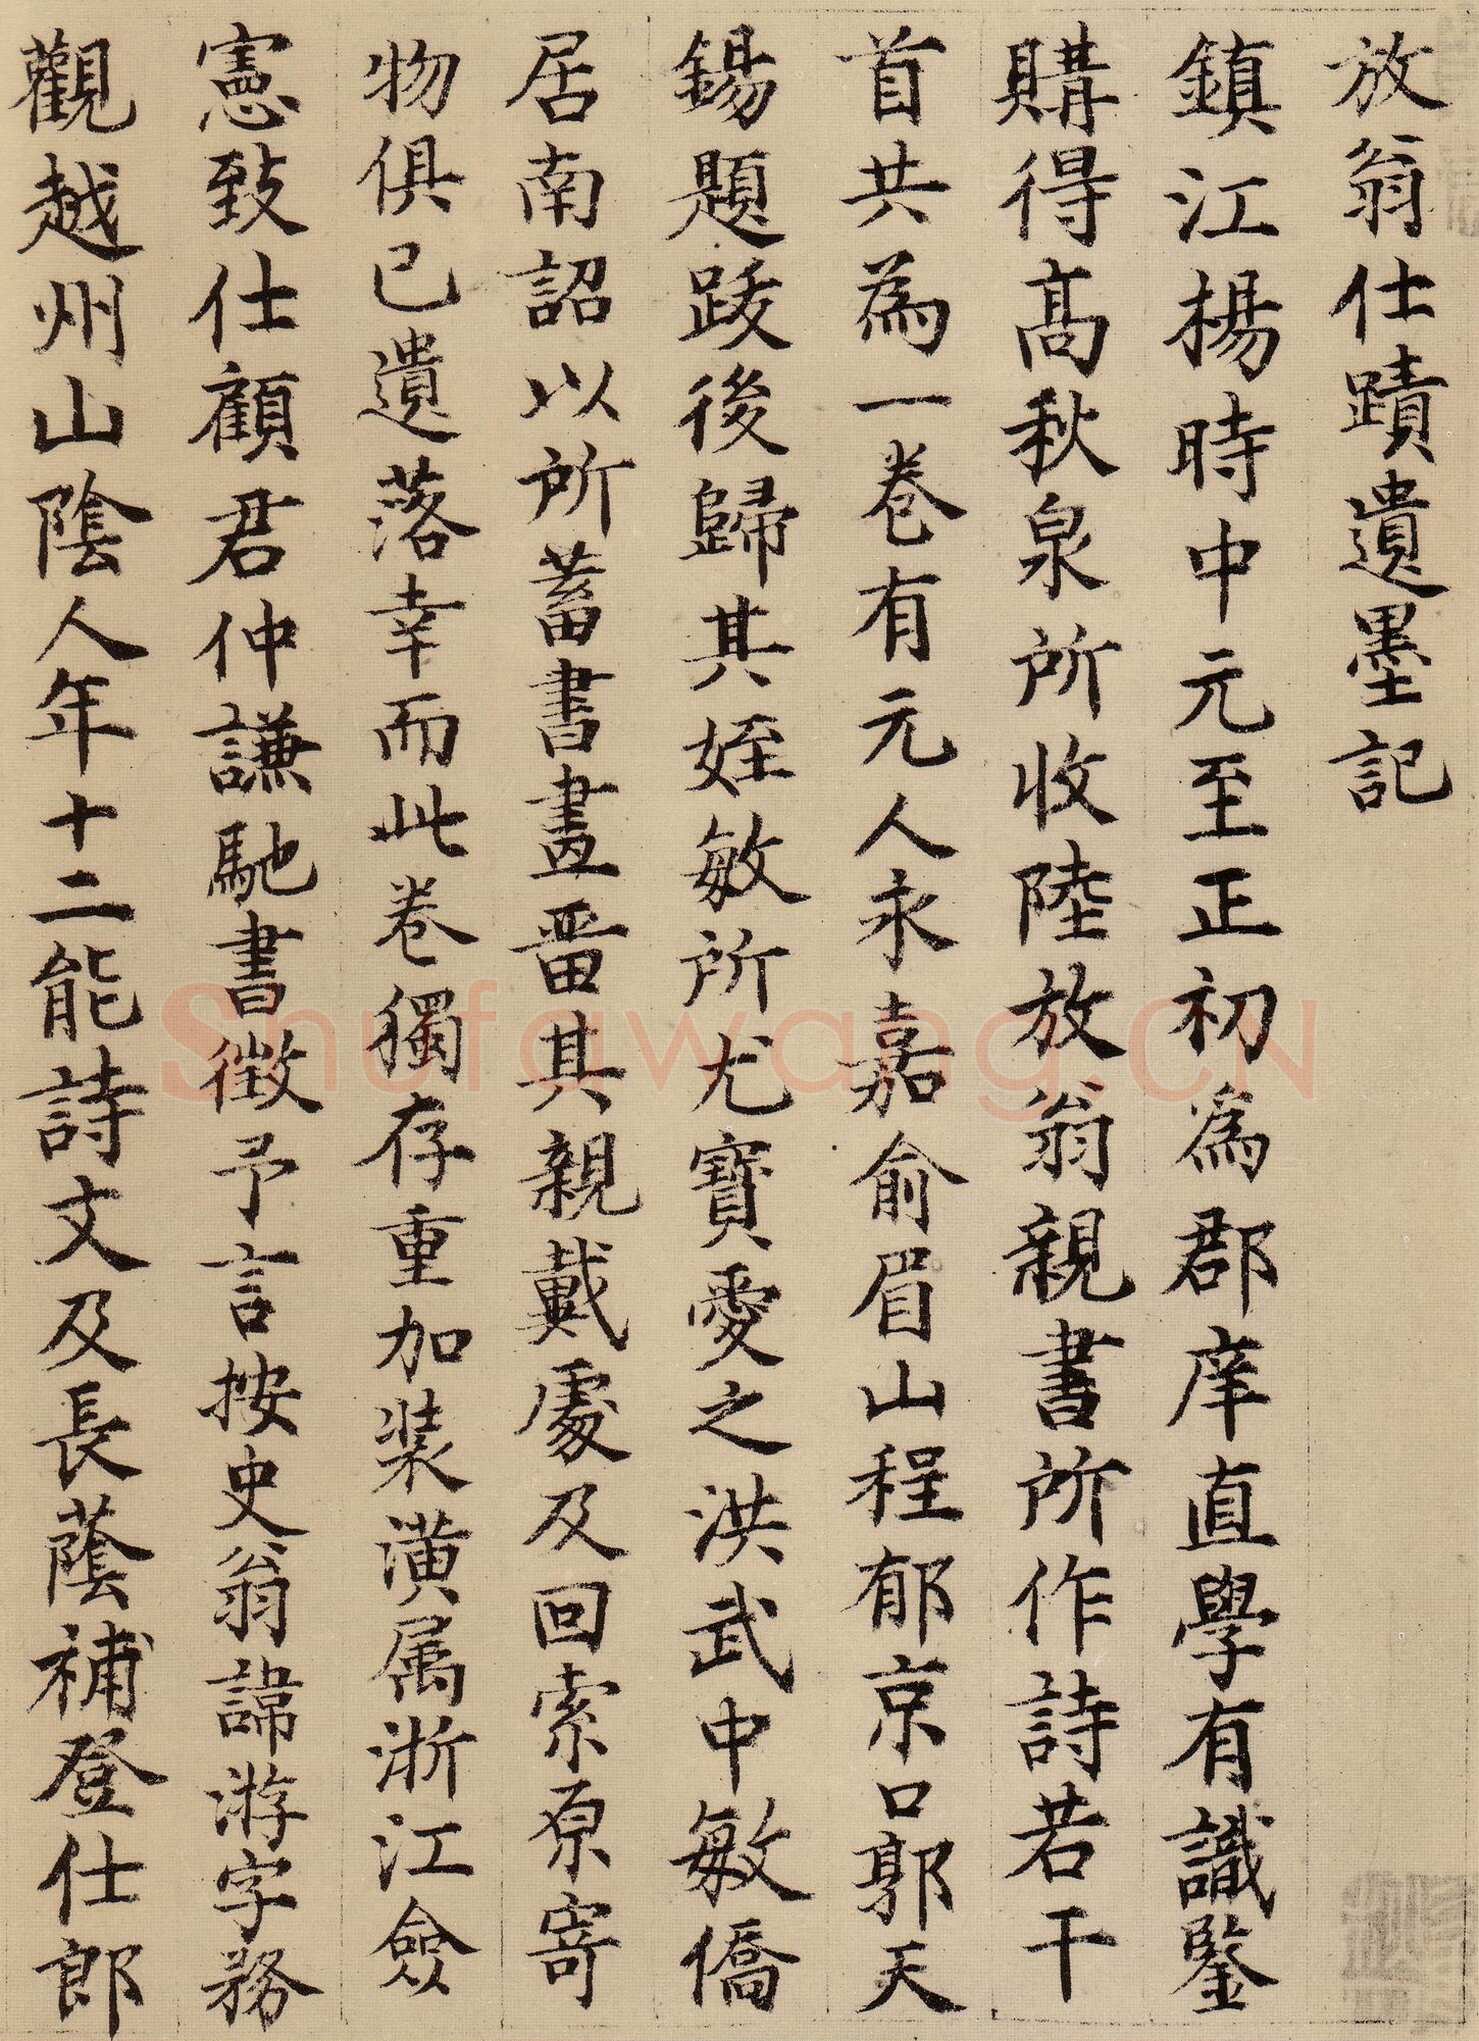 放翁仕蹟遺墨記
鎮江楊時中元至正初為郡庠直學有識鑒
購得髙秋泉所收陸放翁親書所作詩若干
首共為一卷有元人永嘉俞眉山程郁京口郭天
錫題跋後歸其姪敏所尤寶愛之洪武中敏僑
居南詔以所蓄書畫畱其親戴處及回索原寄
物俱已遺落幸而此卷獨存重加装潢属浙江僉
憲致仕顧君仲謙馳書徴予言按史翁諱游字務
觀越州山陰人年十二能詩文及長蔭補登仕郎
Shufawang.CN